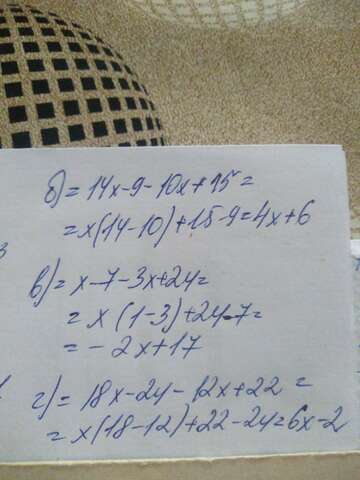 б) = 14x-9-10x+15=
=x(14-10)+15-9=4x+6
в) = x-7-3x+24=
= x (1-3)+24-7=
= - 2x+17
г) = 18x-24-12x+22 =
=x(18-12)+22-24=6x-2